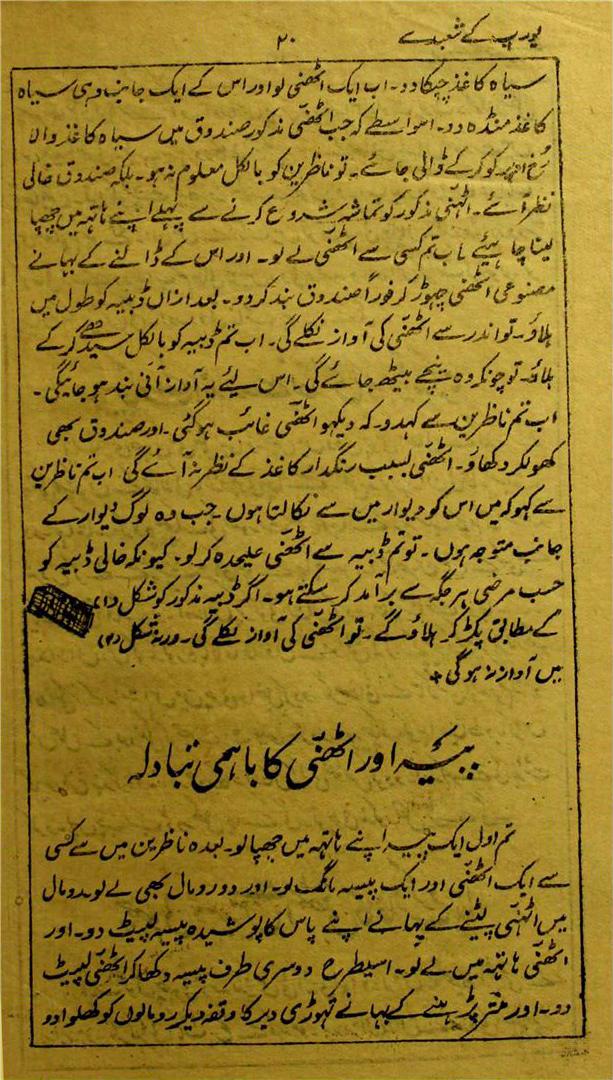 یورپ کے شعبدے
۲۰
سیاہ کاغذ چپکا دو۔ اب ایک اٹھنّی لو اور اس کے ایک جانب وہی سیاہ
کاغذ منڈہ دو۔ اسواسطے کہ جب اٹھنّی مذکور صندوق میں سیاہ کاغذ والا
رُخ اوپر کو کرکے ڈالی جائے۔ تو ناظرین کو بالکل معلوم نہ ہو۔ بلکہ صندوق خالی
نظر آئے۔ اٹھنّی مذکور کو تماشہ شروع کرنے سے پہلے اپنے ہاتہہ میں چھپا
لینا چاہیئے۔ اب تم کسی سے اٹھنّی لے لو۔ اور اس کے ڈالنے کے بہانے
مصنوعی اٹھنّی چہوڑ کر فوراً صندوق بند کر دو۔ بعد ازاں ڈبیہ کو طول میں
ہلاؤ۔ تو اندر سے اٹھنّی کی آواز نکلے گی۔ اب تم ڈبیہ کو بالکل سیدھے کرکے
ہلاؤ۔ تو چونکہ وہ نیچے بیٹھ جائے گی۔ اس لیئے یہ آواز آنی بند ہو جائیگی۔
اب تم ناظرین سے کہدو۔ کہ دیکھو اٹھنّی غائب ہوگئی۔ اور صندوق بھی
کھولکر دکھاؤ۔ اٹھنّی بسبب رنگدار کاغذ کے نظر نہ آئے گی اب تم ناظرین
سے کہو کہ میں اس کو دیوار میں سے نکالتا ہوں۔ جب وہ لوگ دیوار کے
جانب متوجہ ہوں۔ تو تم ڈبیہ سے اٹھنّی علیحدہ کر لو۔ کیونکہ خالی ڈبیہ کو
حسب مرضی ہر جگہ سے برآمد کر سکتے ہو۔ اگر ڈبیہ مذکور کو شکل (۱)
کے مطابق پکڑ کر ہلاؤ گے۔ تو اٹھنّی کی آواز نکلے گی۔ ورنہ شکل (۲)
میں آواز نہ ہوگی +
پیسہ اور اٹھنّی کا باہمی تبادلہ
تم اول ایک پیسہ اپنے ہاتہہ میں چھپا لو۔ بعدہ ناظرین میں سے کسی
سے ایک اٹھنّی اور ایک پیسہ مانگ لو۔ اور دو رومال بھی لے لو۔ رومال
میں اٹھنّی لپٹنے کے بہانے اپنے پاس کا پوشیدہ پیسہ لپیٹ دو۔ اور
اٹھنّی ہاتہہ میں لے لو۔ اسیطرح دوسری طرف پیسہ دکھا کر اٹھنّی لپیٹ
دو۔ اور منتر پڑہنے کے بہانے تہوڑی دیر کا وقفہ دیکر رومالوں کو کھلوا دو